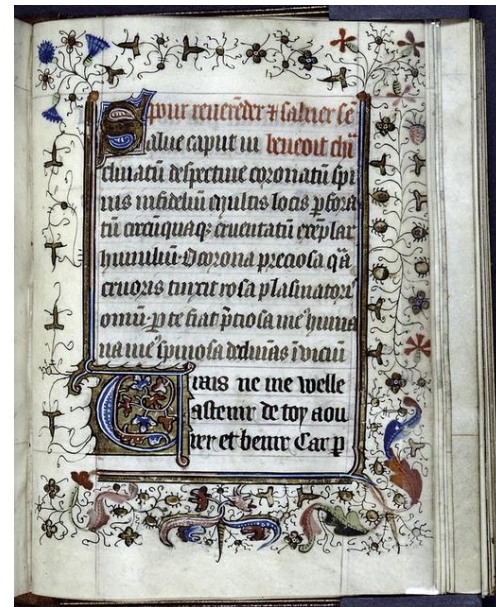 pour reuerẽder ⁊ saluer sẽ
Salue caput in beneoit chi
clinatũ despectiue coronatũ spi
nis infideliũ multis locis ꝑfora
tũ circũquaqꝫ cruentatũ exẽplar
humiliũ. O corona preciosa qã
cruoris tinxit rosa plasmator᷒
omiũ. ꝑ te fiat p̃ciosa me᷒ huma
na me᷒ spinosa ĩ viciũ
ne me welle
astenir de toy aou
rer et benir Car p